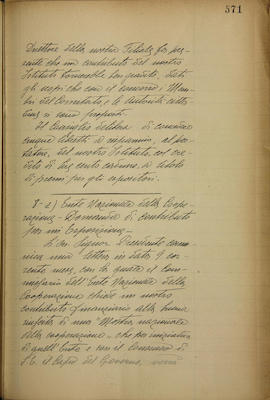 571
Direttore della nostra Filiale fa pre-
sente che un contributo del nostro
Istituto sarebbe ben gradito, dati
gli scopi che con il concorso i Mem-
bri del Comitato, e le Autorità catto-
si sono proposti.
Il Consiglio delibera di concedere
cinque libretti di risparmio, al por-
tatore, del nostro Istituto, col cre-
dito di lire cento caduno, a titolo
di premi per gli espositori.
8 - 2) Ente Nazionale della Coope-
razione - Domanda di contributo
per un'Esposizione -
Il Signor Presidente comu-
nica una lettera in data 9 cor-
rente mese, con la quale il Com-
missario dell'Ente Nazionale della
Cooperazione chiede un nostro
contributo finanziario alla buona
riuscita di una Mostra nazionale
della cooperazione, che per iniziativa
di quell'Ente e con il consenso di
S.E. il Capo del Governo, verrà